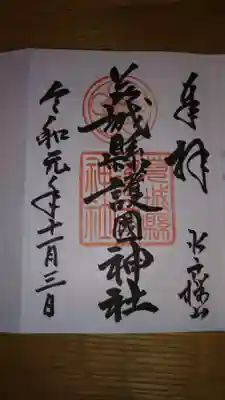 奉拝
水戸桜山
茨城縣護國神社
茨城縣
神社
令和元年十一月三日